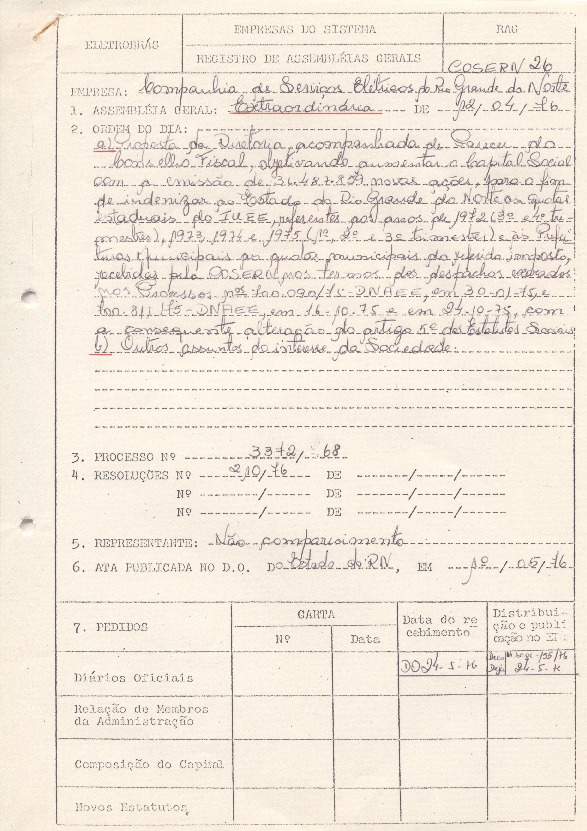 ELETROBRÁS
EMPRESAS DO SISTEMA
RAG
REGISTRO DE ASSEMBLÉIAS GERAIS
COSERN 26
EMPRESA: Companhia de Serviços Elétricos do Rio Grande do Norte
1. ASSEMBLÉIA GERAL: Extraordinária DE 12/04/76
2. ORDEM DO DIA:
a) Proposta da Diretoria, acompanhada de Parecer do
Conselho Fiscal, objetivando aumentar o Capital Social
com a emissão de 36.487.859 novas ações, para o fim
de indenizar ao Estado do Rio Grande do Norte as quotas
estaduais do IUEE, referentes aos anos de 1972 (3º e 4º tri-
mestres), 1973, 1974 e 1975 (1º, 2º e 3º trimestres) e às Prefei-
turas Municipais as quotas municipais do referido imposto,
recebidas pela COSERN, nos termos dos despachos exarados
nos Processos nºs 700.090/75-DNAEE, em 30-01-75 e
700.811/75-DNAEE, em 16-10-75 e em 24-10-75, com
a consequente alteração do artigo 5º dos Estatutos Sociais
b) Outros assuntos do interesse da Sociedade.
3. PROCESSO Nº 3372/68
4. RESOLUÇÕES Nº 210/76 DE / /
Nº / DE / /
Nº / DE / /
5. REPRESENTANTE: Não comparecimento
6. ATA PUBLICADA NO D.O. DO Estado do RN, EM 1º/05/76
7. PEDIDOS
CARTA
Nº
Data
Data do re
cebimento
Distribui-
ção e publi
cação no
Diários Oficiais
DO 24-5-76
24-5-76
Relação de Membros
da Administração
Composição do Capital
Novos Estatutos